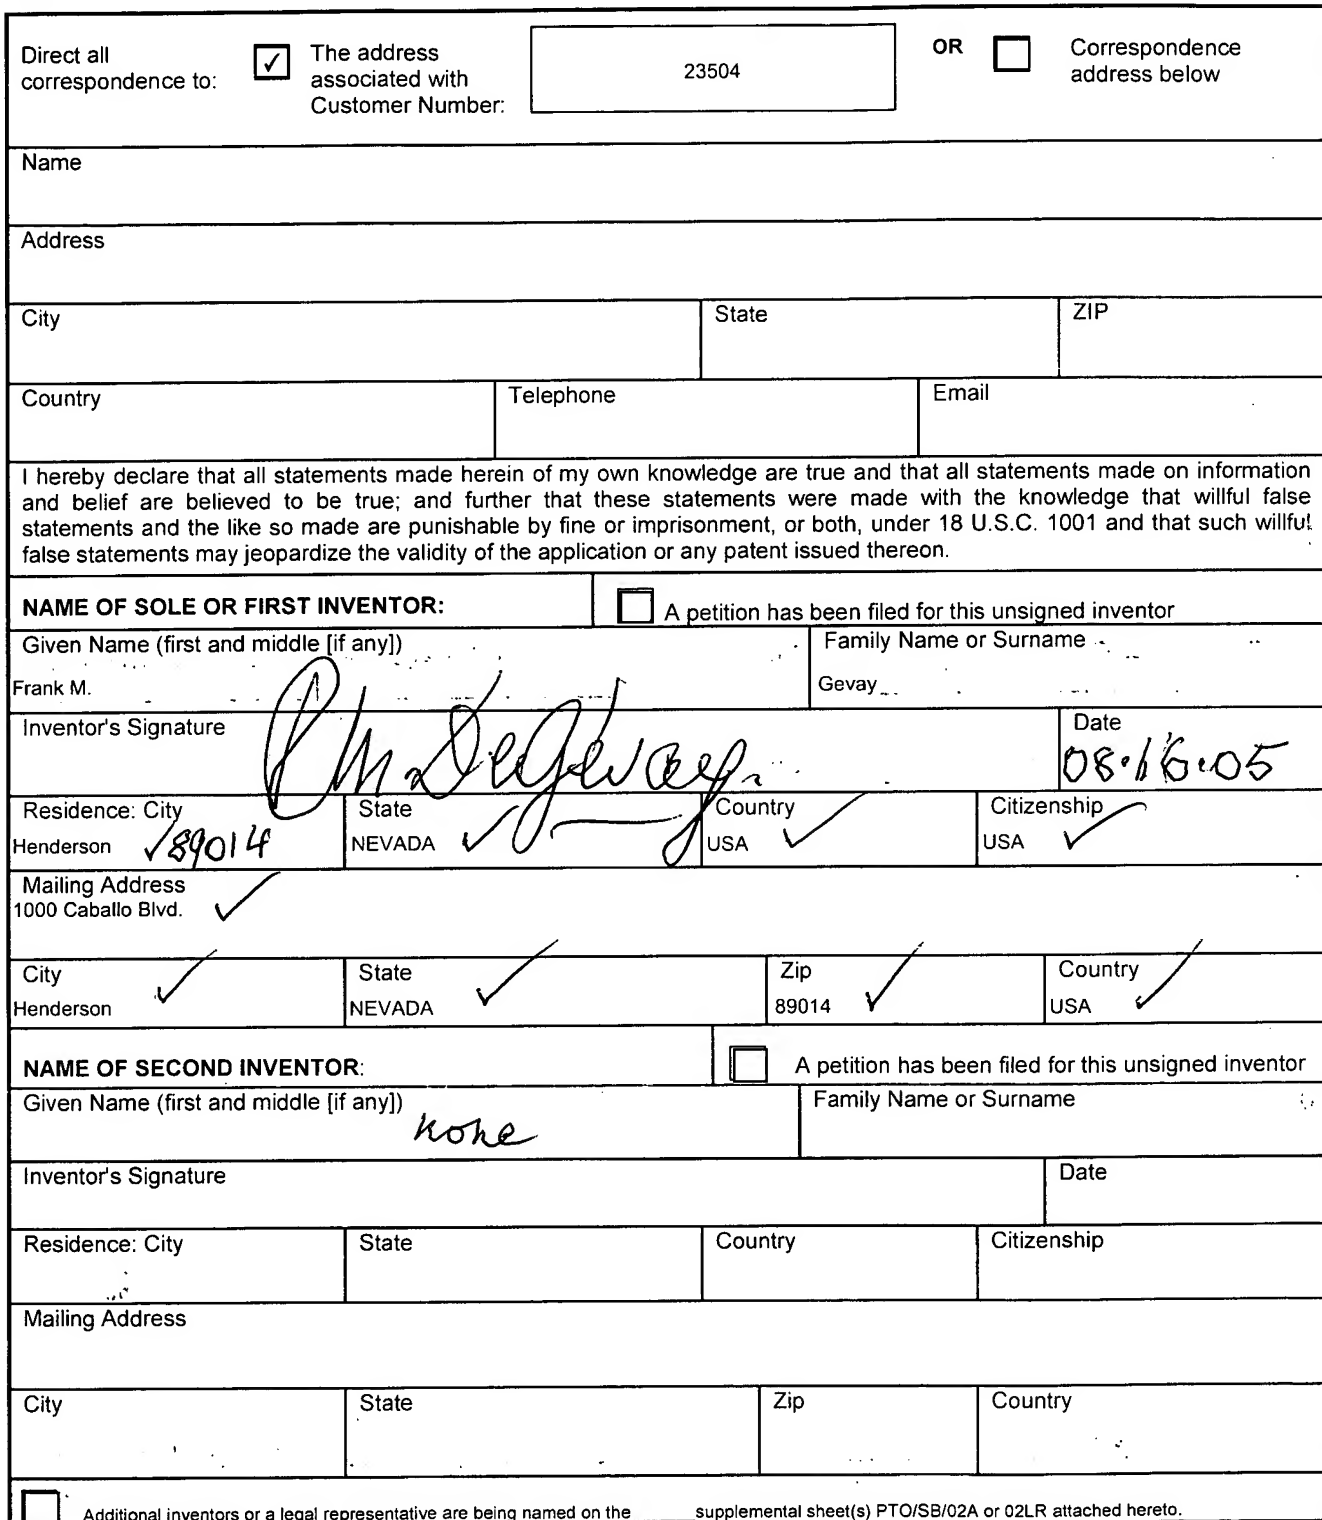 Direct all correspondence to: ✓ The address associated with Customer Number: 23504 OR Correspondence address below
Name
Address
City State ZIP
Country Telephone Email
I hereby declare that all statements made herein of my own knowledge are true and that all statements made on information
and belief are believed to be true; and further that these statements were made with the knowledge that willful false
statements and the like so made are punishable by fine or imprisonment, or both, under 18 U.S.C. 1001 and that such willful
false statements may jeopardize the validity of the application or any patent issued thereon.
NAME OF SOLE OR FIRST INVENTOR: A petition has been filed for this unsigned inventor
Given Name (first and middle [if any]) Family Name or Surname
Frank M. Gevay
Inventor's Signature Date
08.16.05
Residence: City State Country Citizenship
Henderson ✓ 89014 NEVADA ✓ USA ✓ USA ✓
Mailing Address
1000 Caballo Blvd. ✓
City State Zip Country
Henderson ✓ NEVADA ✓ 89014 ✓ USA ✓
NAME OF SECOND INVENTOR: A petition has been filed for this unsigned inventor
Given Name (first and middle [if any]) Family Name or Surname
none
Inventor's Signature Date
Residence: City State Country Citizenship
Mailing Address
City State Zip Country
Additional inventors or a legal representative are being named on the ____ supplemental sheet(s) PTO/SB/02A or 02LR attached hereto.